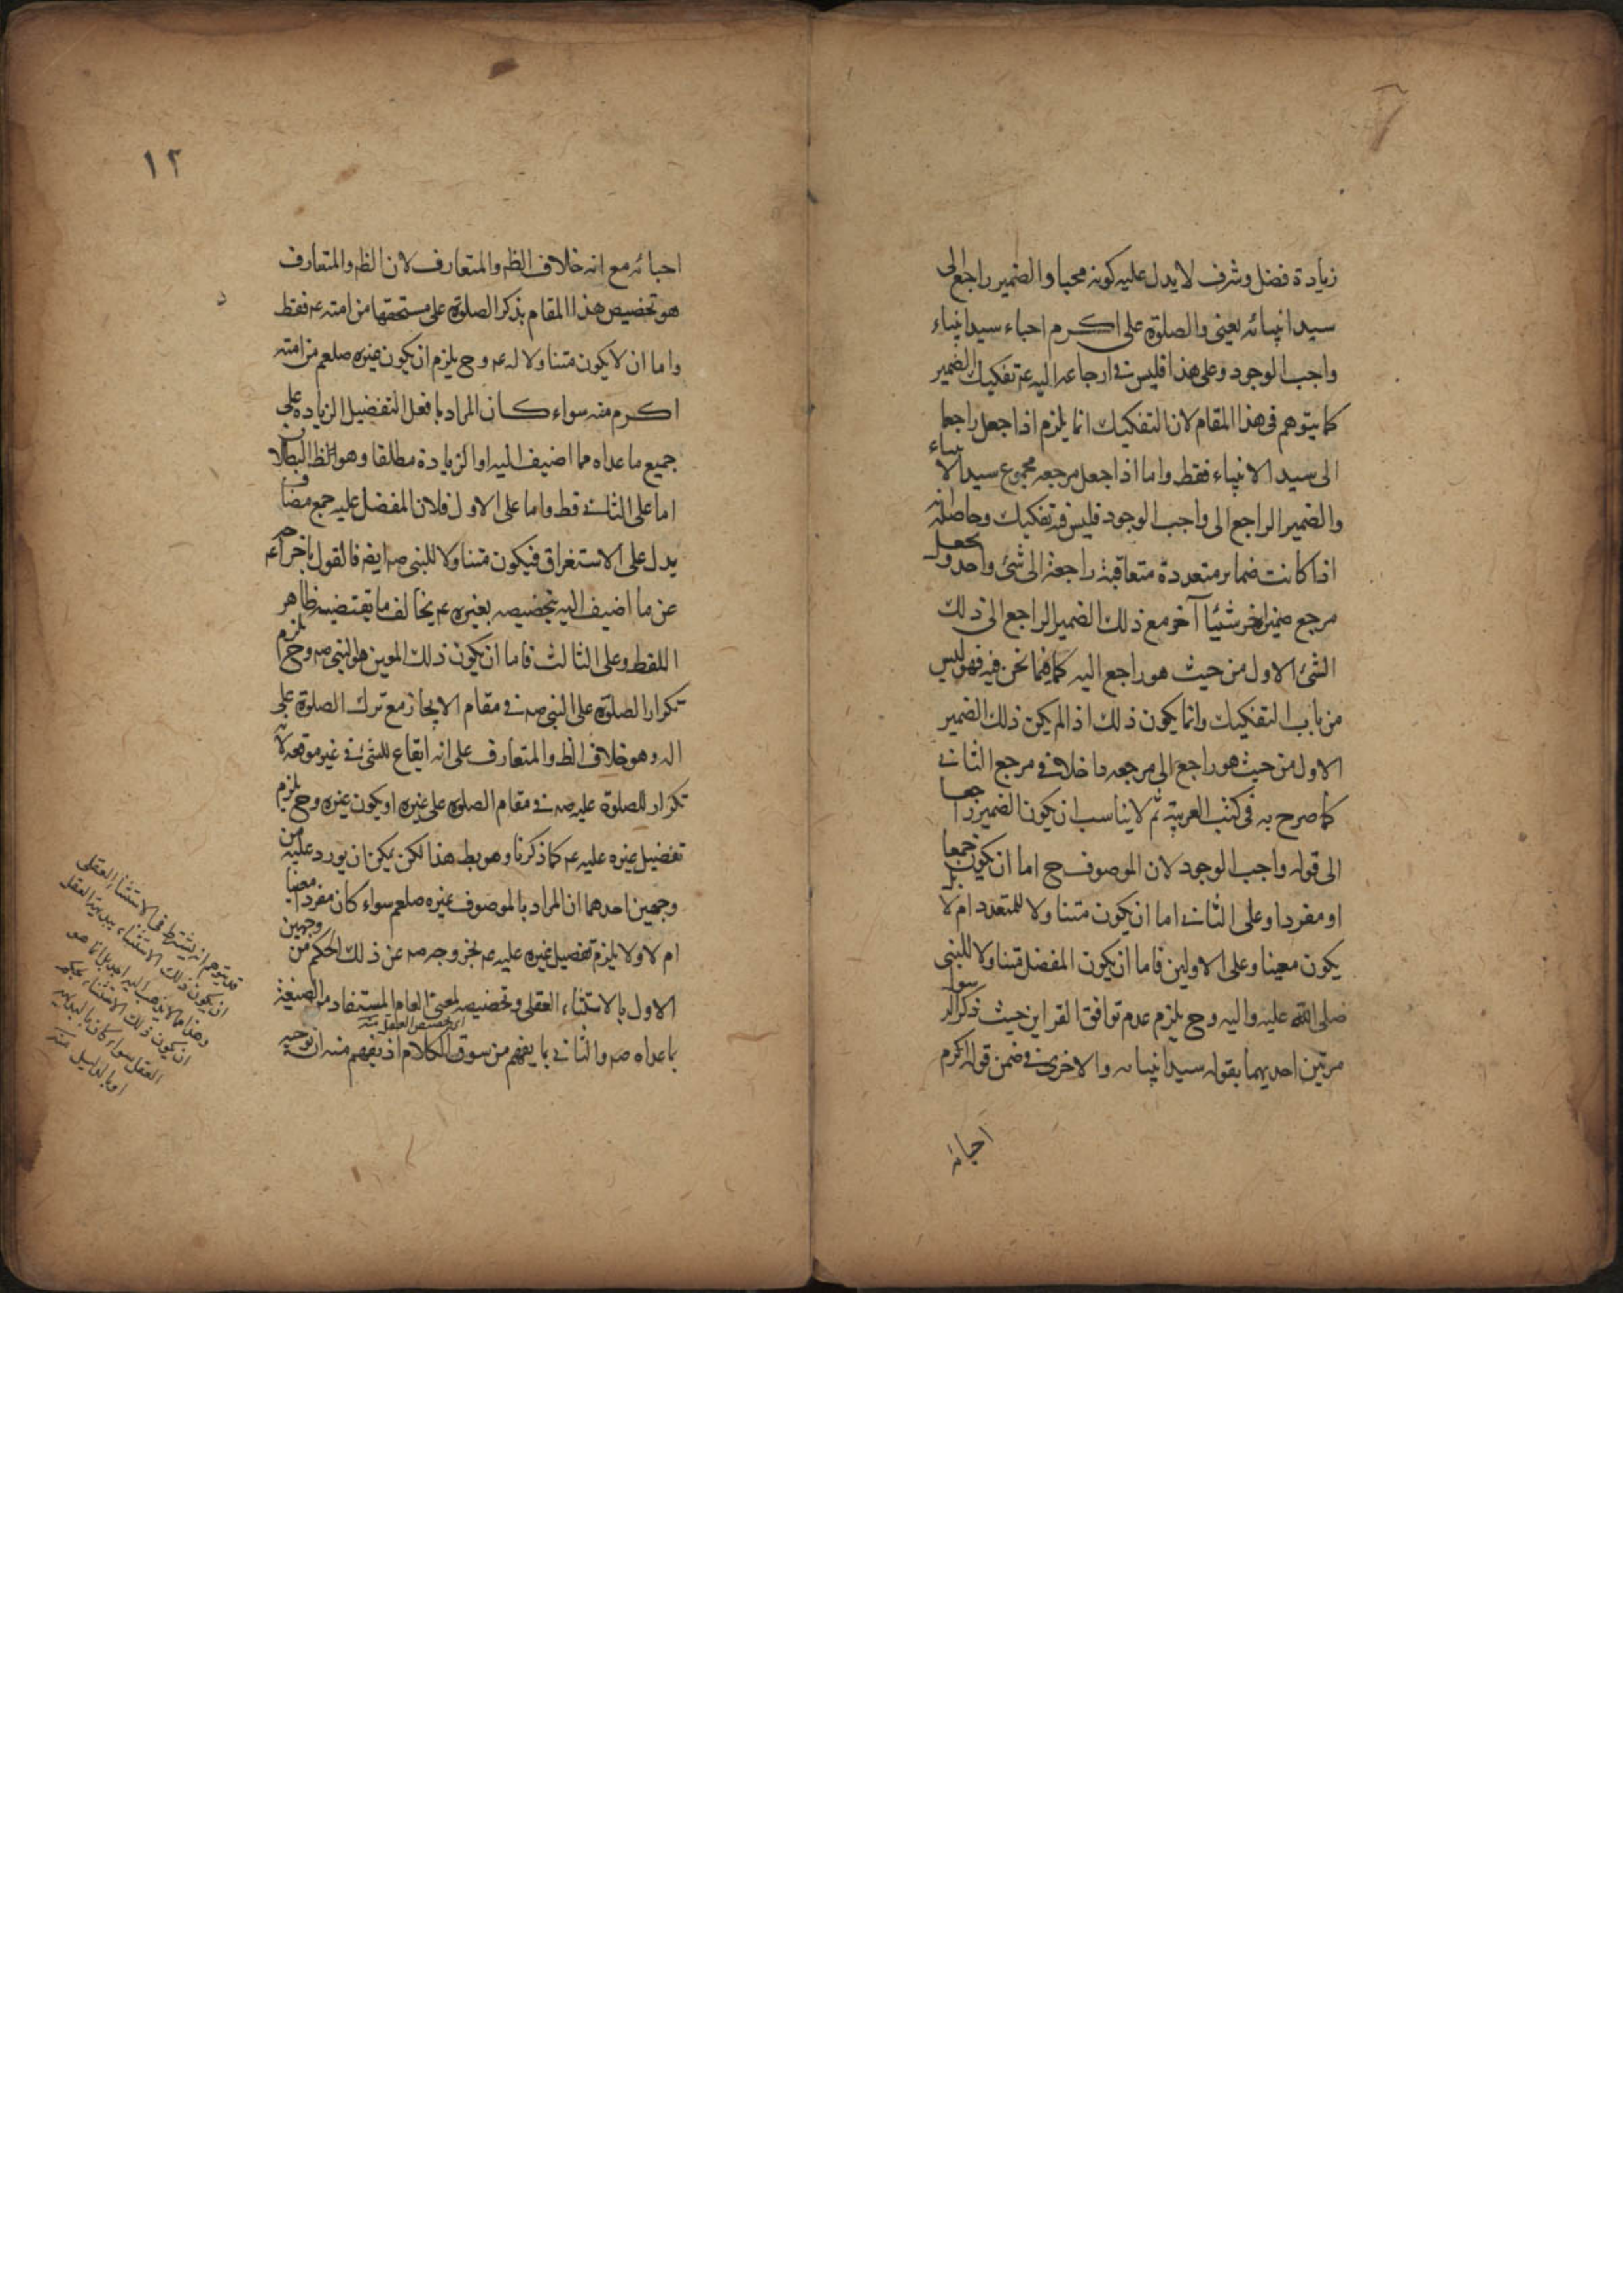 زيادة فضل وشرف لا يدل عليه كونه محبا والضمير راجع الى
سيد انبيائه يعنى والصلوة على اكرم احباء سيد انبياء
واجب الوجود وعلى هذا فليس فى ارجاعه اليه عم تفكيك الضمير
كما يتوهم فى هذا المقام لان التفكيك انما يلزم اذا جعل راجعا
الى سيد الانبياء فقط واما اذا جعل مرجعه مجموع سيد الانبياء
والضمير الراجع الى واجب الوجود فليس فيه تفكيك وحاصله انه
اذا كانت ضماير متعددة متعاقبة راجعة الى شئ واحد وجعل
مرجع ضمير اخر شيئا آخر مع ذلك الضمير الراجع الى ذلك
الشئ الاول من حيث هو راجع اليه كما فيما نحن فيه فهو ليس
من باب التفكيك وانما يكون ذلك اذا لم يكن ذلك الضمير
الاول من حيث هو راجع الى مرجعه داخلا فى مرجع الثانى
كما صرح به فى كتب العربية ثم لا يناسب ان يكون الضمير راجعا
الى قوله واجب الوجود لان الموصوف ح اما ان يكون جمعا
او مفردا وعلى الثانى اما ان يكون متناولا للمتعدد ام لا بل
يكون معينا وعلى الاولين فاما ان يكون المفضل متناولا للنبى
صلى الله عليه واليه وح يلزم عدم توافق القراين حيث ذكر الرسول
مرتين احديهما بقوله سيد انبيائه والاخرى فى ضمن قوله اكرم
احبائه
١٢
احبائه مع انه خلاف الظ والمتعارف لان الظ والمتعارف
هو تخصيص هذا المقام بذكر الصلوة على مستحقها من امته عم فقط
واما ان لا يكون متناولا له عم وح يلزم ان يكون غيره صلعم من امته
اكرم منه سواء كان المراد بافعل التفضيل الزيادة على
جميع ما عداه مما اضيف اليه او الزيادة مطلقا وهو ظ البطلان
اما على الثانى فظ واما على الاول فلان المفضل عليه جمع مضاف
يدل على الاستغراق فيكون متناولا للنبى صم ايضا فالقول باخراجه عم
عن ما اضيف اليه بتخصيصه بغيره عم يخالف ما يقتضيه ظاهر
اللفظ وعلى الثالث فاما ان يكون ذلك المعين هو النبى صم وح يلزم
تكرار الصلوة على النبى صم فى مقام الايجاز مع ترك الصلوة على
اله وهو خلاف الظ والمتعارف على انه ايقاع للشئ فى غير موقعه لانه
تكرار للصلوة عليه صم فى مقام الصلوة على غيره او يكون غيره وح يلزم
تفضيل غيره عليه عم كما ذكرنا وهو بط هذا لكن يمكن ان يورد عليه من
وجهين احدهما ان المراد بالموصوف غيره صلعم سواء كان مفردا معينا
ام لا ولا يلزم تفضيل غيره عليه عم بخروجه صم عن ذلك الحكم من وجهين
الاول بالاستثناء العقلى وتخصيصه لمعنى العام المستفاد من الصيغة
اى تخصيص العقل منه
بما عداه صم والثانى بما يفهم من سوق الكلام اذ يفهم منه ان توجيه
قد يتوهم انه يشترط فى الاستثناء العقلى
ان يكون ذلك الاستثناء ببديهة العقل
وهذا مما لا يذهب اليه احد بل انما هو
ان يكون ذلك الاستثناء بحكم
العقل سواء كان بالبداهة
او بالدليل منه